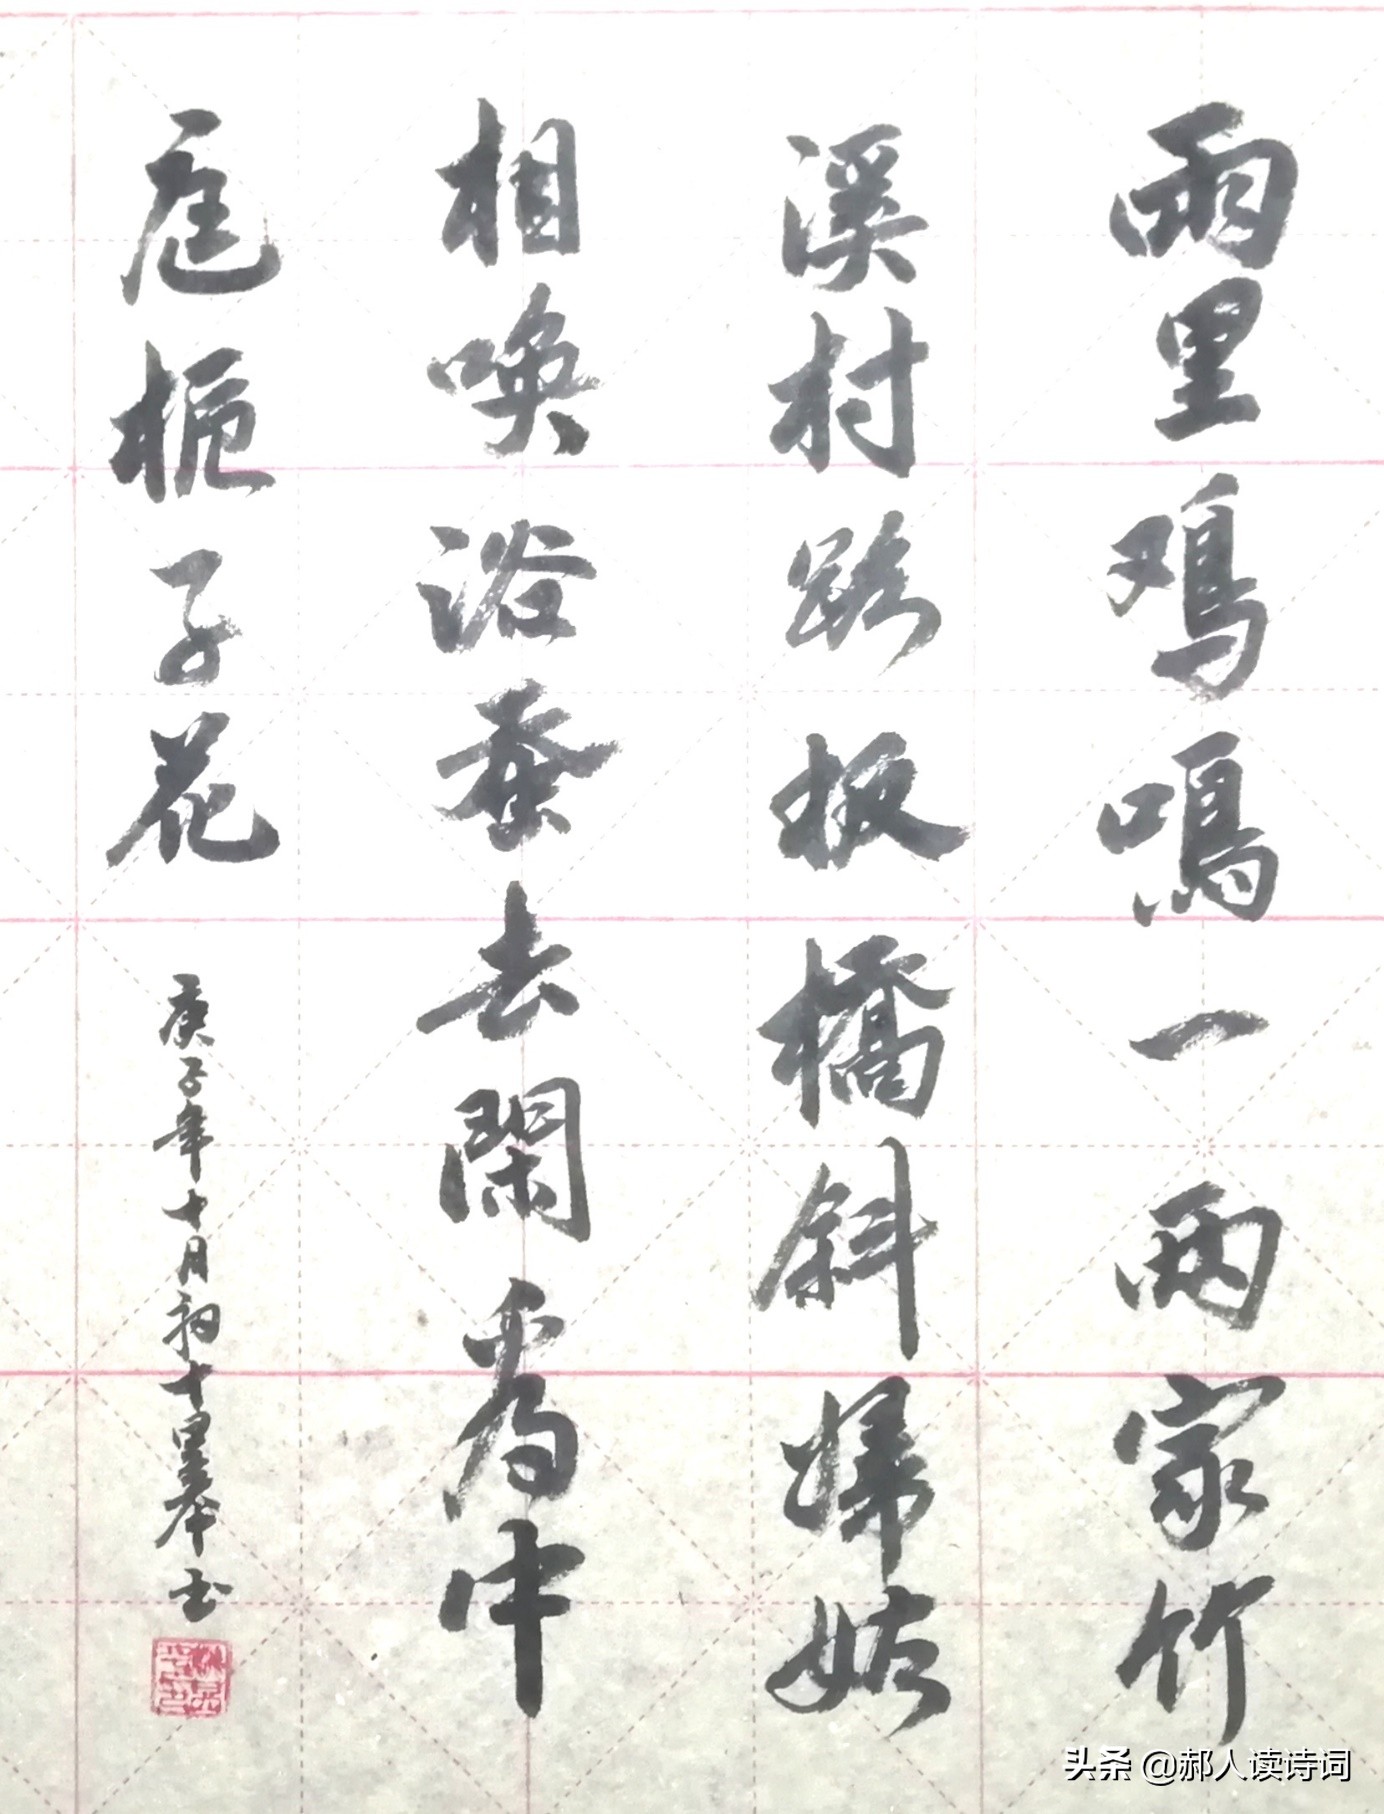 雨里鸡鸣一两家竹
溪村路板橋斜婦姑
相唤浴蚕去閑看中
庭栀子花
庚子年十月初十墨奉书
头条 @郝人读诗词